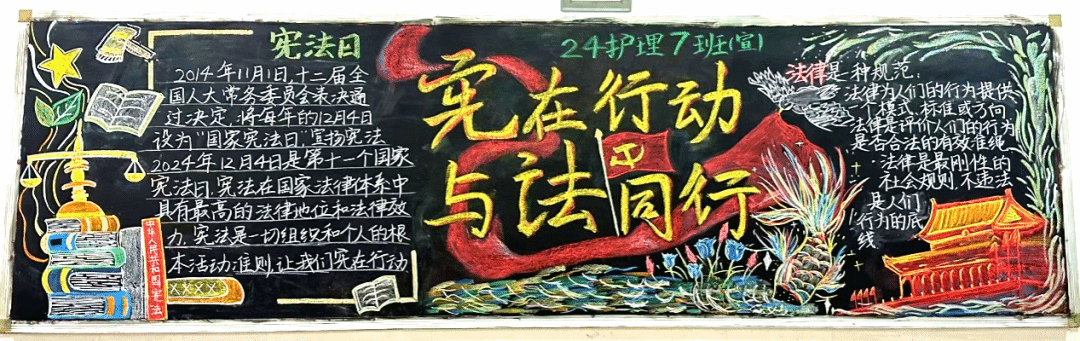 宪法日
2014年11月1日,十二届全
国人大常务委员会表决通
过决定,将每年的12月4日
设为"国家宪法日",宣扬宪法
2024年12月4日是第十一个国家
宪法日,宪法在国家法律体系中
具有最高的法律地位和法律效
力,宪法是一切组织和个人的根
本活动准则,让我们宪在行动
中华人民共和国宪法
24护理7班(宣)
宪在行动
与法同行
法律是一种规范:
法律为人们的行为提供
一个模式、标准或方向
法律是评价人们的行为
是否合法的有效准绳
·法律是最刚性的
社会规则,不违法
是人们
行为的底
线